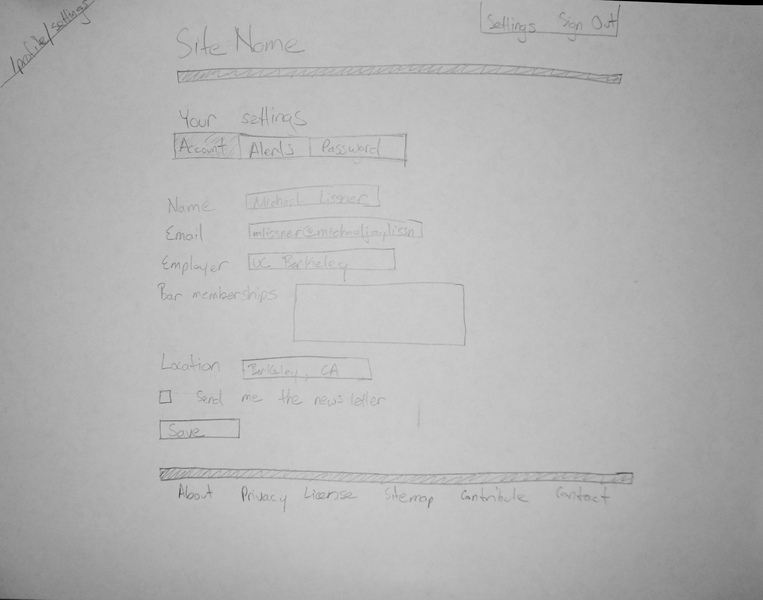 /profile/settings
Settings Sign Out
Site Name
Your settings
Account Alerts Password
Name Michael Lissner
Email mlissner@michaeljaylissn
Employer UC Berkeley
Bar memberships
Location Berkeley, CA
Send me the newsletter
Save
About Privacy License Sitemap Contribute Contact